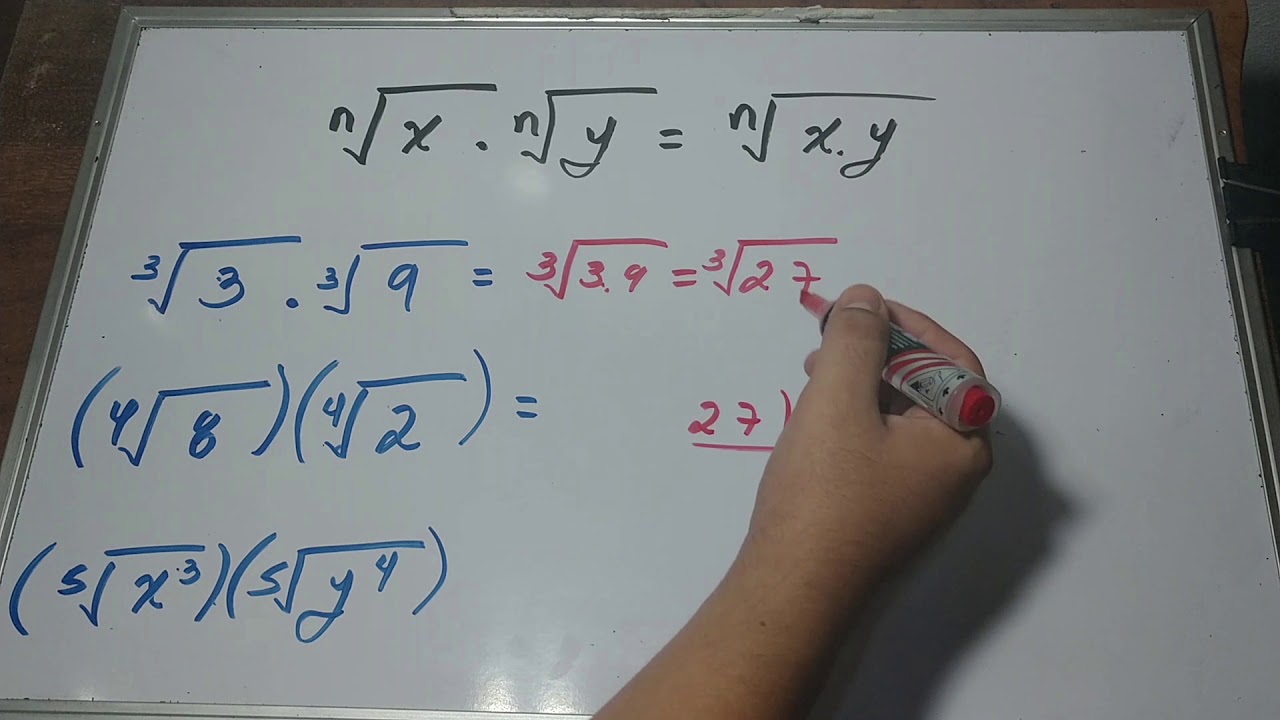 ⁿ√x . ⁿ√y = ⁿ√x.y
³√3 . ³√9 = ³√3.9 = ³√27
(⁴√8)(⁴√2) =
27)
(⁵√x³)(⁵√y⁴)